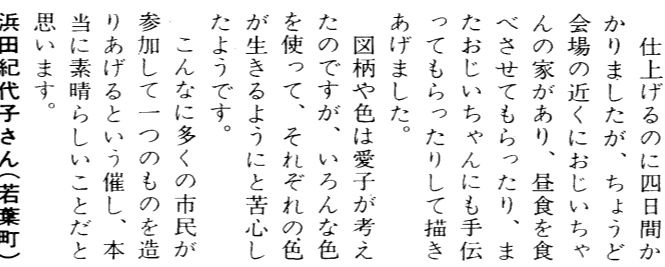 仕上げるのに四日間か
かりましたが、ちょうど
会場の近くにおじいちゃ
んの家があり、昼食を食
べさせてもらったり、ま
たおじいちゃんにも手伝
ってもらったりして描き
あげました。
図柄や色は愛子が考え
たのですが、いろんな色
を使って、それぞれの色
が生きるようにと苦心し
たようです。
こんなに多くの市民が
参加して一つのものを造
りあげるという催し、本
当に素晴らしいことだと
思います。
浜田紀代子さん(若葉町)